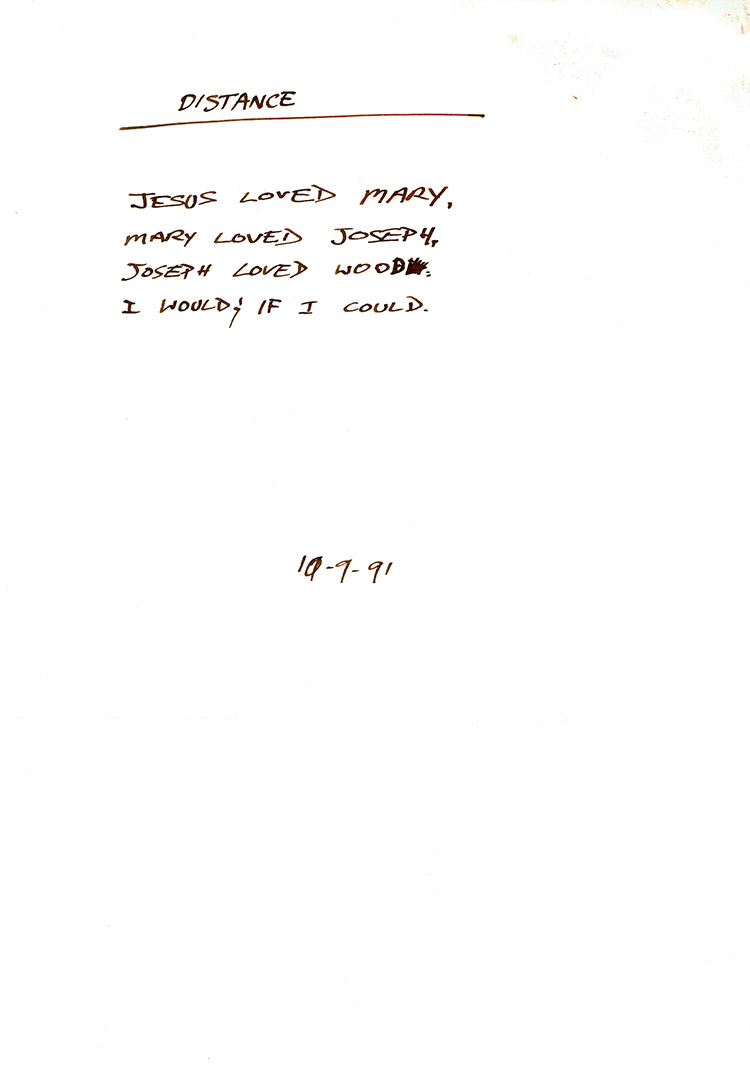 DISTANCE
JESUS LOVED MARY,
MARY LOVED JOSEPH,
JOSEPH LOVED WOOD.
I WOULD; IF I COULD.
10-9-91